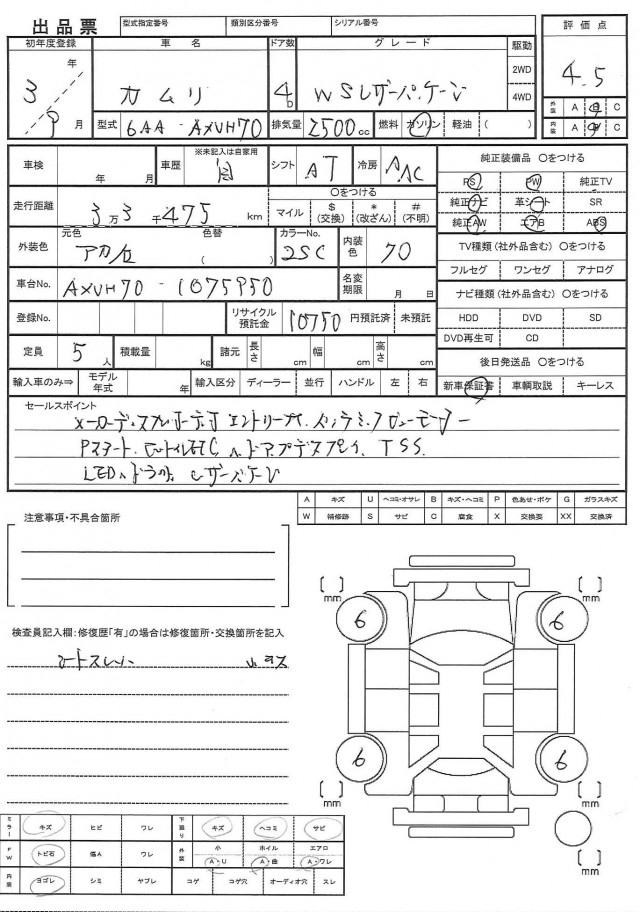 出品票
型式指定番号 類別区分番号 シリアル番号
初年度登録 車名 ドア数 グレード 駆動 評価点
3年 カムリ 4D WSレザーパッケージ 2WD 4.5
9月 4WD 外装 A B C
型式 6AA-AXVH70 排気量 2500cc 燃料 ガソリン 軽油 ( ) 内装 A B C
車検 年 月 車歴 ※未記入は自家用 自 シフト AT 冷房 AAC 純正装備品 ○をつける
PS PW 純正TV
走行距離 3万3千475km ○をつける
マイル $(交換) *(改ざん) #(不明)
純正ナビ 革シート SR
純正AW エアB ABS
外装色 元色 アカ 色替 ( ) カラーNo. 2SC 内装色 70
TV種類(社外品含む) ○をつける
フルセグ ワンセグ アナログ
車台No. AXVH70-1075950 名変期限 月 日
ナビ種類(社外品含む) ○をつける
登録No. リサイクル預託金 10750 円預託済 未預託
HDD DVD SD
DVD再生可 CD
定員 5人 積載量 kg 諸元 長さ cm 幅 cm 高さ cm
後日発送品 ○をつける
輸入車のみ⇒ モデル年式 年 輸入区分 ディーラー 並行 ハンドル 左 右
新車保証書 車輌取説 キーレス
セールスポイント
Pスタート
TSS
LED レザーパッケージ
A キズ U ヘコミ・オサレ B キズ・ヘコミ P 色あせ・ボケ G ガラスキズ
W 補修跡 S サビ C 腐食 X 交換要 XX 交換済
注意事項・不具合箇所
[ ] mm [ ] mm
6 6
検査員記入欄:修復歴「有」の場合は修復箇所・交換箇所を記入
6 6
[ ] mm [ ] mm
ミラー キズ ヒビ ワレ 下廻り キズ ヘコミ サビ
FW トビ石 傷A ワレ 外装 小 A・U ホイル A・曲 エアロ A・ワレ
内装 ヨゴレ シミ ヤブレ コゲ コゲ穴 オーディオ穴 スレ